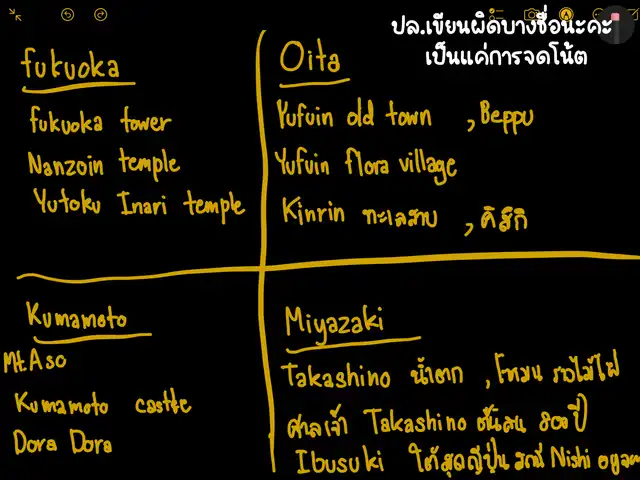 ปล.เขียนผิดบางชื่อนะคะ
เป็นแค่การจดโน้ต
fukuoka
fukuoka tower
Nanzoin temple
Yutoku Inari temple
Oita
Yufuin old town , Beppu
Yufuin flora village
Kinrin ทะเลสาบ , คิสึกิ
Kumamoto
Mt.Aso
Kumamoto castle
Dora Dora
Miyazaki
Takashino น้ำตก , โทเมน รางไม้ไผ่
ศาลเจ้า Takashino ต้นสน 800 ปี
Ibusuki ใต้สุดญี่ปุ่น สถานี Nishi oyama